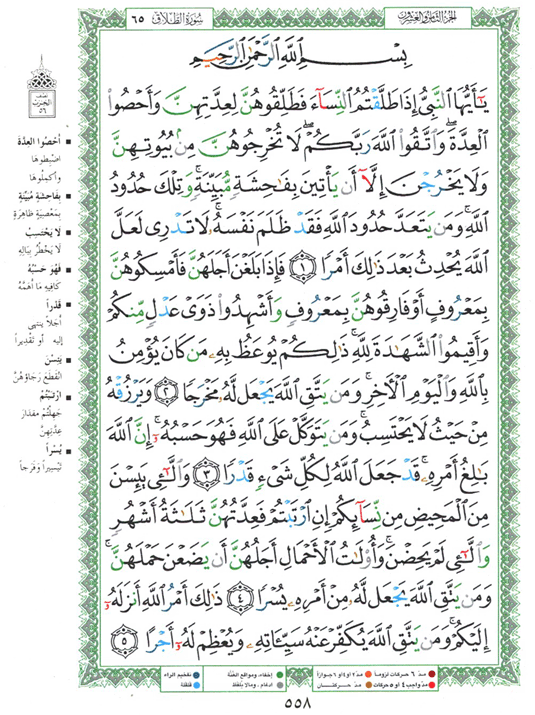 الجزء الثامن والعشرون
سورة الطلاق ٦٥
بِسْمِ اللَّهِ الرَّحْمَٰنِ الرَّحِيمِ
يَٰٓأَيُّهَا ٱلنَّبِىُّ إِذَا طَلَّقْتُمُ ٱلنِّسَآءَ فَطَلِّقُوهُنَّ لِعِدَّتِهِنَّ وَأَحْصُوا۟
ٱلْعِدَّةَ ۖ وَٱتَّقُوا۟ ٱللَّهَ رَبَّكُمْ ۖ لَا تُخْرِجُوهُنَّ مِنۢ بُيُوتِهِنَّ
وَلَا يَخْرُجْنَ إِلَّآ أَن يَأْتِينَ بِفَٰحِشَةٍ مُّبَيِّنَةٍ ۚ وَتِلْكَ حُدُودُ
ٱللَّهِ ۚ وَمَن يَتَعَدَّ حُدُودَ ٱللَّهِ فَقَدْ ظَلَمَ نَفْسَهُۥ ۚ لَا تَدْرِى لَعَلَّ
ٱللَّهَ يُحْدِثُ بَعْدَ ذَٰلِكَ أَمْرًا ١ فَإِذَا بَلَغْنَ أَجَلَهُنَّ فَأَمْسِكُوهُنَّ
بِمَعْرُوفٍ أَوْ فَارِقُوهُنَّ بِمَعْرُوفٍ وَأَشْهِدُوا۟ ذَوَىْ عَدْلٍ مِّنكُمْ
وَأَقِيمُوا۟ ٱلشَّهَٰدَةَ لِلَّهِ ۚ ذَٰلِكُمْ يُوعَظُ بِهِۦ مَن كَانَ يُؤْمِنُ
بِٱللَّهِ وَٱلْيَوْمِ ٱلْءَاخِرِ ۚ وَمَن يَتَّقِ ٱللَّهَ يَجْعَل لَّهُۥ مَخْرَجًا ٢ وَيَرْزُقْهُ
مِنْ حَيْثُ لَا يَحْتَسِبُ ۚ وَمَن يَتَوَكَّلْ عَلَى ٱللَّهِ فَهُوَ حَسْبُهُۥٓ ۚ إِنَّ ٱللَّهَ
بَٰلِغُ أَمْرِهِۦ ۚ قَدْ جَعَلَ ٱللَّهُ لِكُلِّ شَىْءٍ قَدْرًا ٣ وَٱلَّٰٓـِٔى يَئِسْنَ
مِنَ ٱلْمَحِيضِ مِن نِّسَآئِكُمْ إِنِ ٱرْتَبْتُمْ فَعِدَّتُهُنَّ ثَلَٰثَةُ أَشْهُرٍ
وَٱلَّٰٓـِٔى لَمْ يَحِضْنَ ۚ وَأُو۟لَٰتُ ٱلْأَحْمَالِ أَجَلُهُنَّ أَن يَضَعْنَ حَمْلَهُنَّ ۚ
وَمَن يَتَّقِ ٱللَّهَ يَجْعَل لَّهُۥ مِنْ أَمْرِهِۦ يُسْرًا ٤ ذَٰلِكَ أَمْرُ ٱللَّهِ أَنزَلَهُۥٓ
إِلَيْكُمْ ۚ وَمَن يَتَّقِ ٱللَّهَ يُكَفِّرْ عَنْهُ سَيِّـَٔاتِهِۦ وَيُعْظِمْ لَهُۥٓ أَجْرًا ٥
نصف
الحزب
٥٦
أحصوا العدة
اضبطوها
وأكملوها
بفاحشة مبينة
بمعصية ظاهرة
لا يحتسب
لا يخطر بباله
فهو حسبه
كافيه ما أهمه
قدرا
أجلا ينتهي
إليه أو تقديرا
يئسن
انقطع رجاؤهن
ارتبتم
جهلتم مقدار
عدتهن
يسرا
تيسيرا وفرجا
مد ٦ حركات لزوما
مد ٢ او ٤ او ٦ جوازا
إخفاء، ومواقع الغنة
تفخيم الراء
مد واجب ٤ أو ٥ حركات
مد حركتان
ادغام، ومالا يلفظ
قلقلة
٥٥٨